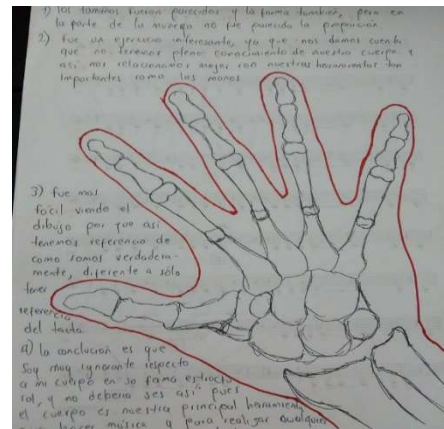 1) los tamaños fueron parecidos y la forma también, pero en
la parte de la muñeca no fue parecida la proporción.
2) fue un ejercicio interesante, ya que nos damos cuenta
que no tenemos pleno conocimiento de nuestro cuerpo y
así nos relacionamos mejor con nuestras herramientas tan
importantes como las manos.
3) fue mas
fácil viendo el
dibujo por que así
tenemos referencia de
como somos verdadera-
mente, diferente a sólo
tener
referencia
del tacto.
4) la conclusión es que
soy muy ignorante respecto
a mi cuerpo en su forma estructu
ral, y no debería ser así pues
el cuerpo es nuestra principal herramient
hacer música y para realizar cualquier